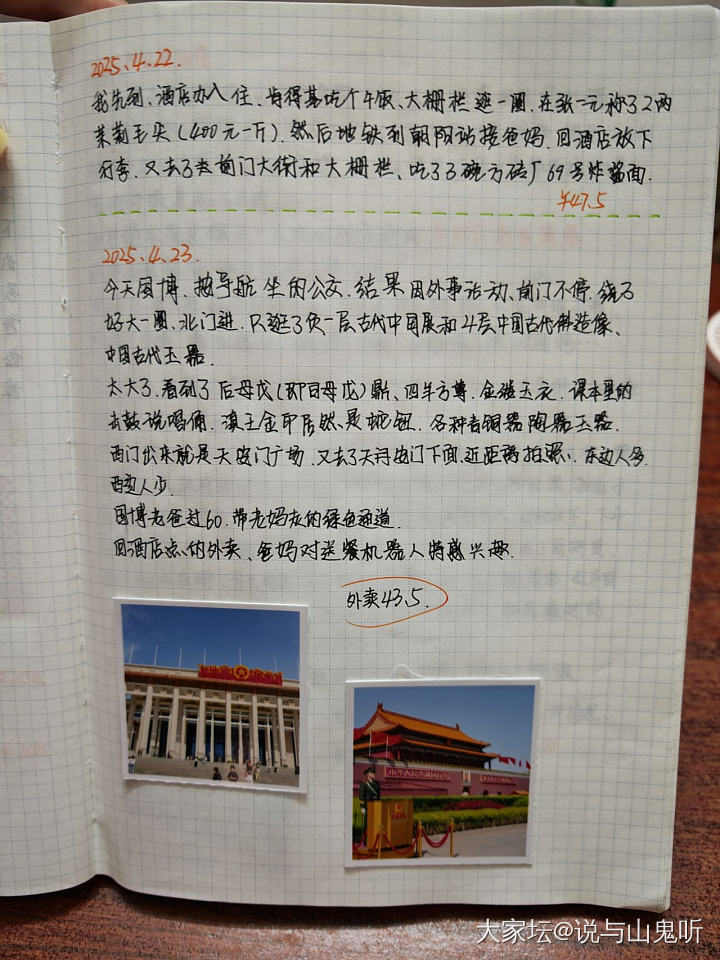 2025.4.22.
我先到、酒店办入住、肯得基吃个午饭、大栅栏逛一圈.在张一元称了2两
茉莉毛尖(400元一斤).然后地铁到朝阳站接爸妈.回酒店放下
行李.又去了去前门大街和大栅栏、吃了3碗方砖厂69号炸酱面.
¥47.5
2025.4.23.
今天国博.按导航坐的公交.结果因外事活动、前门不停.绕了
好大一圈.北门进.只逛了负一层古代中国展和4层中国古代佛造像、
中国古代玉器.
太大了.看到了后母戊(即司母戊)鼎、四羊方尊.金缕玉衣.课本里的
击鼓说唱俑.滇王金印居然是蛇钮.各种青铜器陶器玉器.
西门出来就是天安门广场.又去了天安门下面.近距离拍照.东边人多
西边人少.
国博老爸过60.带老妈走的绿色通道.
回酒店点的外卖、爸妈对送餐机器人特感兴趣.
外卖43.5.
中华人民共和国万岁
大家坛@说与山鬼听